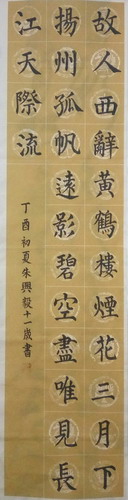 故人西辭黃鶴樓煙花三月下
揚州孤帆遠影碧空盡唯見長
江天際流
丁酉初夏朱興毅十一歲書